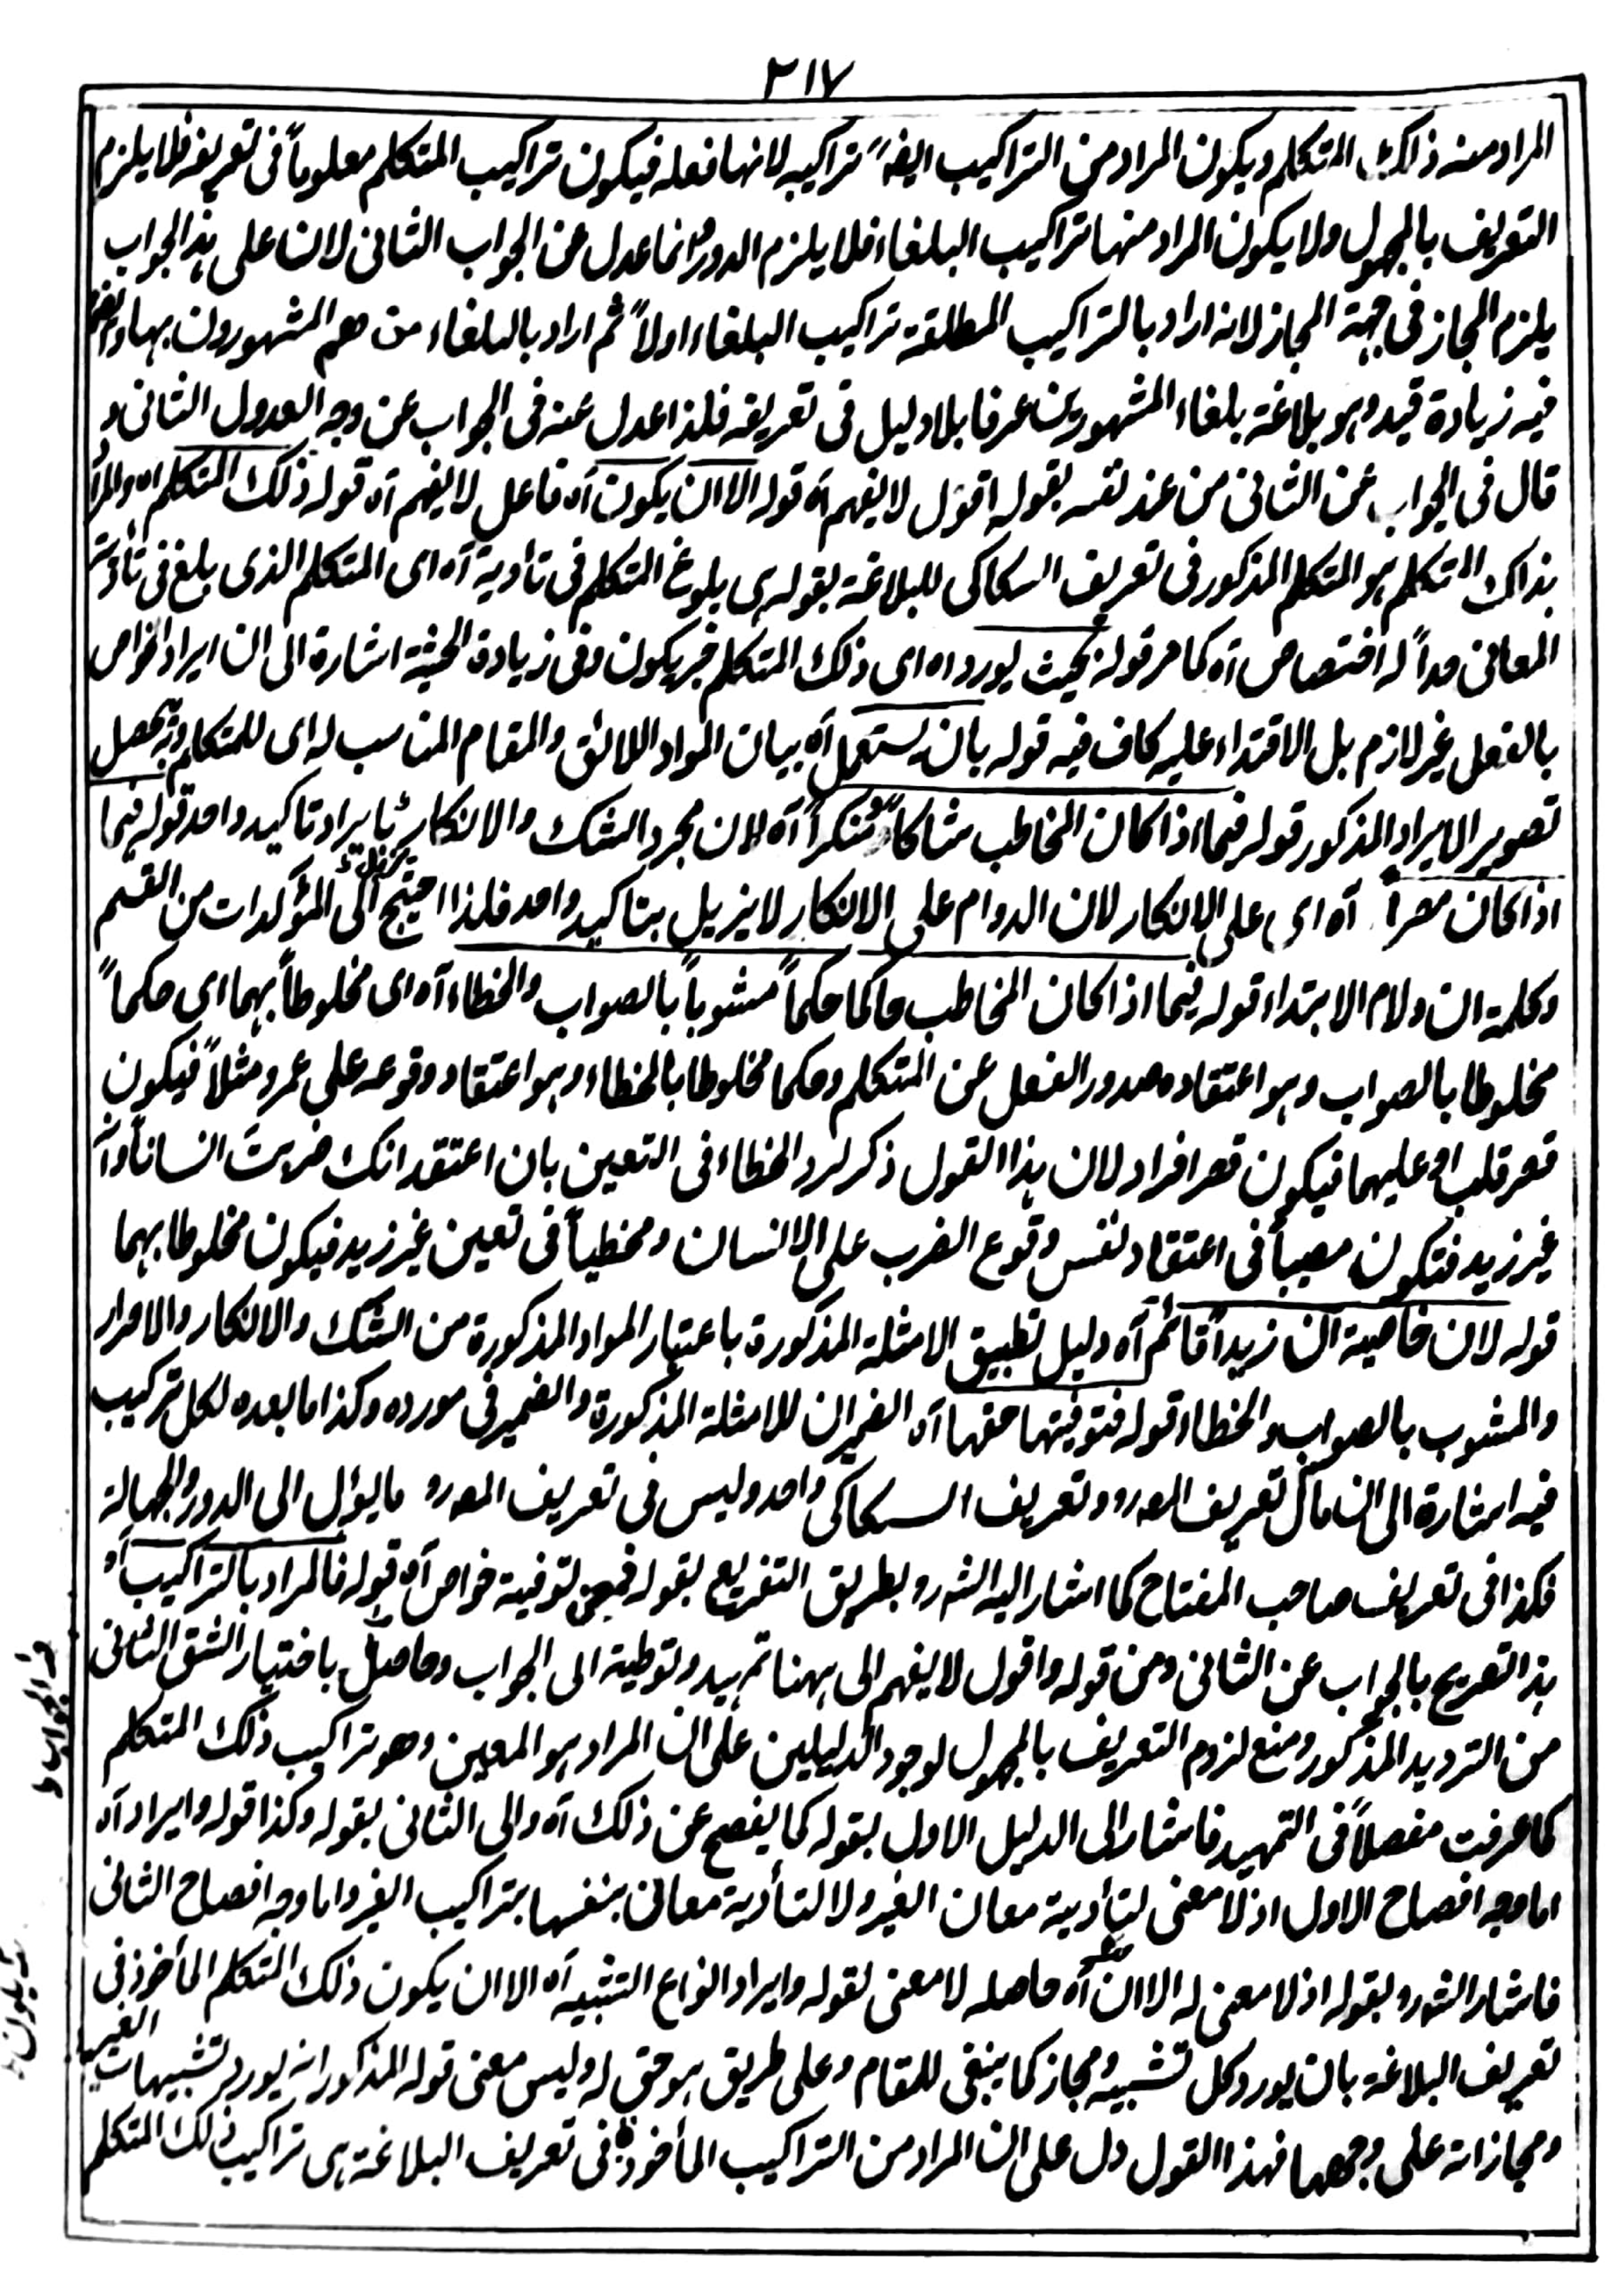 ٣١٧
المراد منه ذاك المتكلم ويكون المراد من التراكيب ايضا تراكيبه لانها فعله فيكون تراكيب المتكلم معلوماً فى تعريفه فلا يلزم
التعريف بالمجهول ولا يكون المراد منها تراكيب البلغاء فلا يلزم الدور وانما عدل عن الجواب الثانى لان على هذا الجواب
يلزم المجاز فى جهة المجاز لانه اراد بالتراكيب المطلقة تراكيب البلغاء اولاً ثم اراد بالبلغاء من هم المشهورون بها وايضا
فيه زيادة قيد وهو بلاغة بلغاء المشهورين عرفا بلا دليل فى تعريفه فلذا عدل عنه فى الجواب عن وجه العدول الثانى و
قال فى الجواب عن الثانى من عند نفسه بقوله اقول لا يفهم آه قوله الا ان يكون آه فاعل لا يفهم آه قوله ذلك المتكلم اه والمراد
بذاك المتكلم هو المتكلم المذكور فى تعريف السكاكى للبلاغة بقوله هى بلوغ المتكلم فى تأدية آه اى المتكلم الذى بلغ فى تأدية
المعانى حداً له اختصاص آه كما مر قوله بحيث يورد اه اى ذلك المتكلم خبر يكون وفى زيادة الحيثية اشارة الى ان ايراد الخواص
بالفعل غير لازم بل الاقتداء عليه كاف فيه قوله بان يستعمل آه بيان المواد اللائق والمقام المناسب له اى للمتكلم وبه يحصل
تصوير الايراد المذكور قوله فيما اذا كان المخاطب شاكا او منكراً آه لان مجرد الشك والانكار بايراد تاكيد واحد قوله فيما
اذا كان مصراً آه اى على الانكار لان الدوام على الانكار لا يزيل بتاكيد واحد فلذا احتيج الى المؤكدات من القسم
وكلمة ان ولام الابتداء قوله فيما اذا كان المخاطب حاكما حكماً مشوباً بالصواب والخطاء آه اى مخلوطاً بهما اى حكماً
مخلوطا بالصواب وهو اعتقاده صدور الفعل عن المتكلم وحكما مخلوطا بالخطاء وهو اعتقاد وقوعه على عمرو مثلاً فيكون
قصر قلب او عليهما فيكون قصر افراد لان هذا القول ذكر لرد الخطاء فى التعين بان اعتقد انك ضربت انسانا وانه
غير زيد فتكون مصيباً فى اعتقاد نفس وقوع الضرب على الانسان ومخطياً فى تعين غير زيد فيكون مخلوطا بهما
قوله لان خاصية ان زيداً قائم آه دليل تطبيق الامثلة المذكورة باعتبار المواد المذكورة من الشك والانكار والاصرار
والمشوب بالصواب والخطاء قوله فتوفيتها حقها آه الضميران للامثلة المذكورة والضمير فى مورده وكذا ما بعده لكل تركيب
فيه اشارة الى ان مآل تعريف المصرو وتعريف السكاكى واحد وليس فى تعريف المصرو ما يؤل الى الدور والجهالة
فكذا فى تعريف صاحب المفتاح كما اشار اليه الشرو بطريق التفريع بقوله فمعنى توفية خواص آه قوله فالمراد بالتراكيب آه
هذا تصريح بالجواب عن الثانى ومن قوله واقول لا يفهم الى ههنا تمهيد وتوطية الى الجواب وحاصله باختيار الشق الثانى
من الترديد المذكور ومنع لزوم التعريف بالمجهول لوجود الدليلين على ان المراد هو المعين وهو تراكيب ذلك المتكلم
كما عرفت مفصلاً فى التمهيد فاشار الى الدليل الاول بقوله كما يفصح عن ذلك آه والى الثانى بقوله وكذا قوله وايراد آه
اما وجه افصاح الاول اذ لا معنى لتأدية معان الغير ولا لتأدية معانى بنفسها بتراكيب الغير واما وجه افصاح الثانى
فاشار الشرو بقوله اذ لا معنى له الا ان آه حاصله لا معنى لقوله وايراد انواع التشبيه آه الا ان يكون ذلك المتكلم المأخوذ فى
تعريف البلاغة بان يورد كل تشبيه ومجاز كما ينبغى للمقام وعلى طريق هو حق له وليس معنى قوله المذكور انه يورد تشبيهات الغير
ومجازاته على وجهها فهذا القول دل على ان المراد من التراكيب المأخوذة فى تعريف البلاغة هى تراكيب ذلك المتكلم